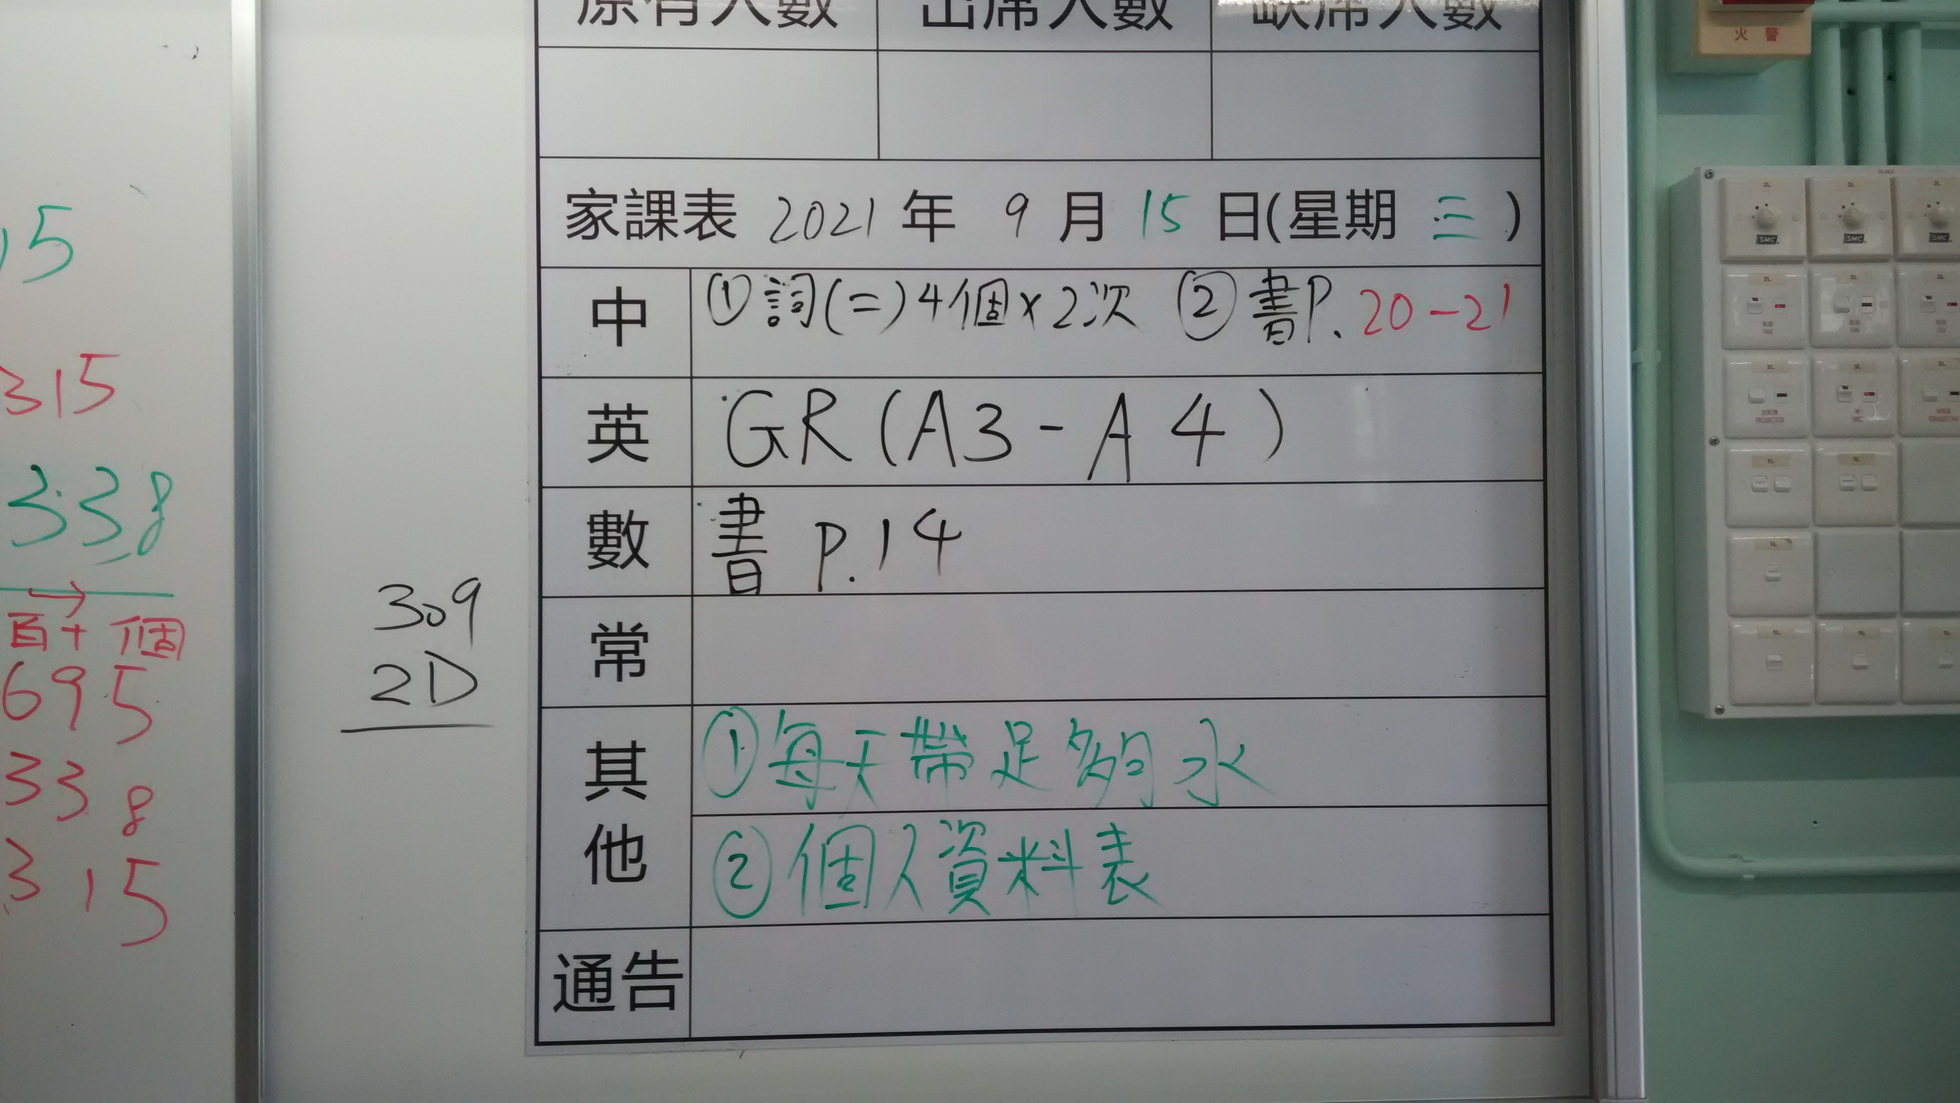 原有人數 出席人數 缺席人數
火 警
家課表 2021 年 9 月 15 日(星期 三)
中 ①詞(二)4個×2次 ②書P.20-21
英 GR(A3-A4)
數 書 P.14
常
其他 ①每天帶足夠水
②個人資料表
通告
309
2D
15
315
338
百十個
695
338
315